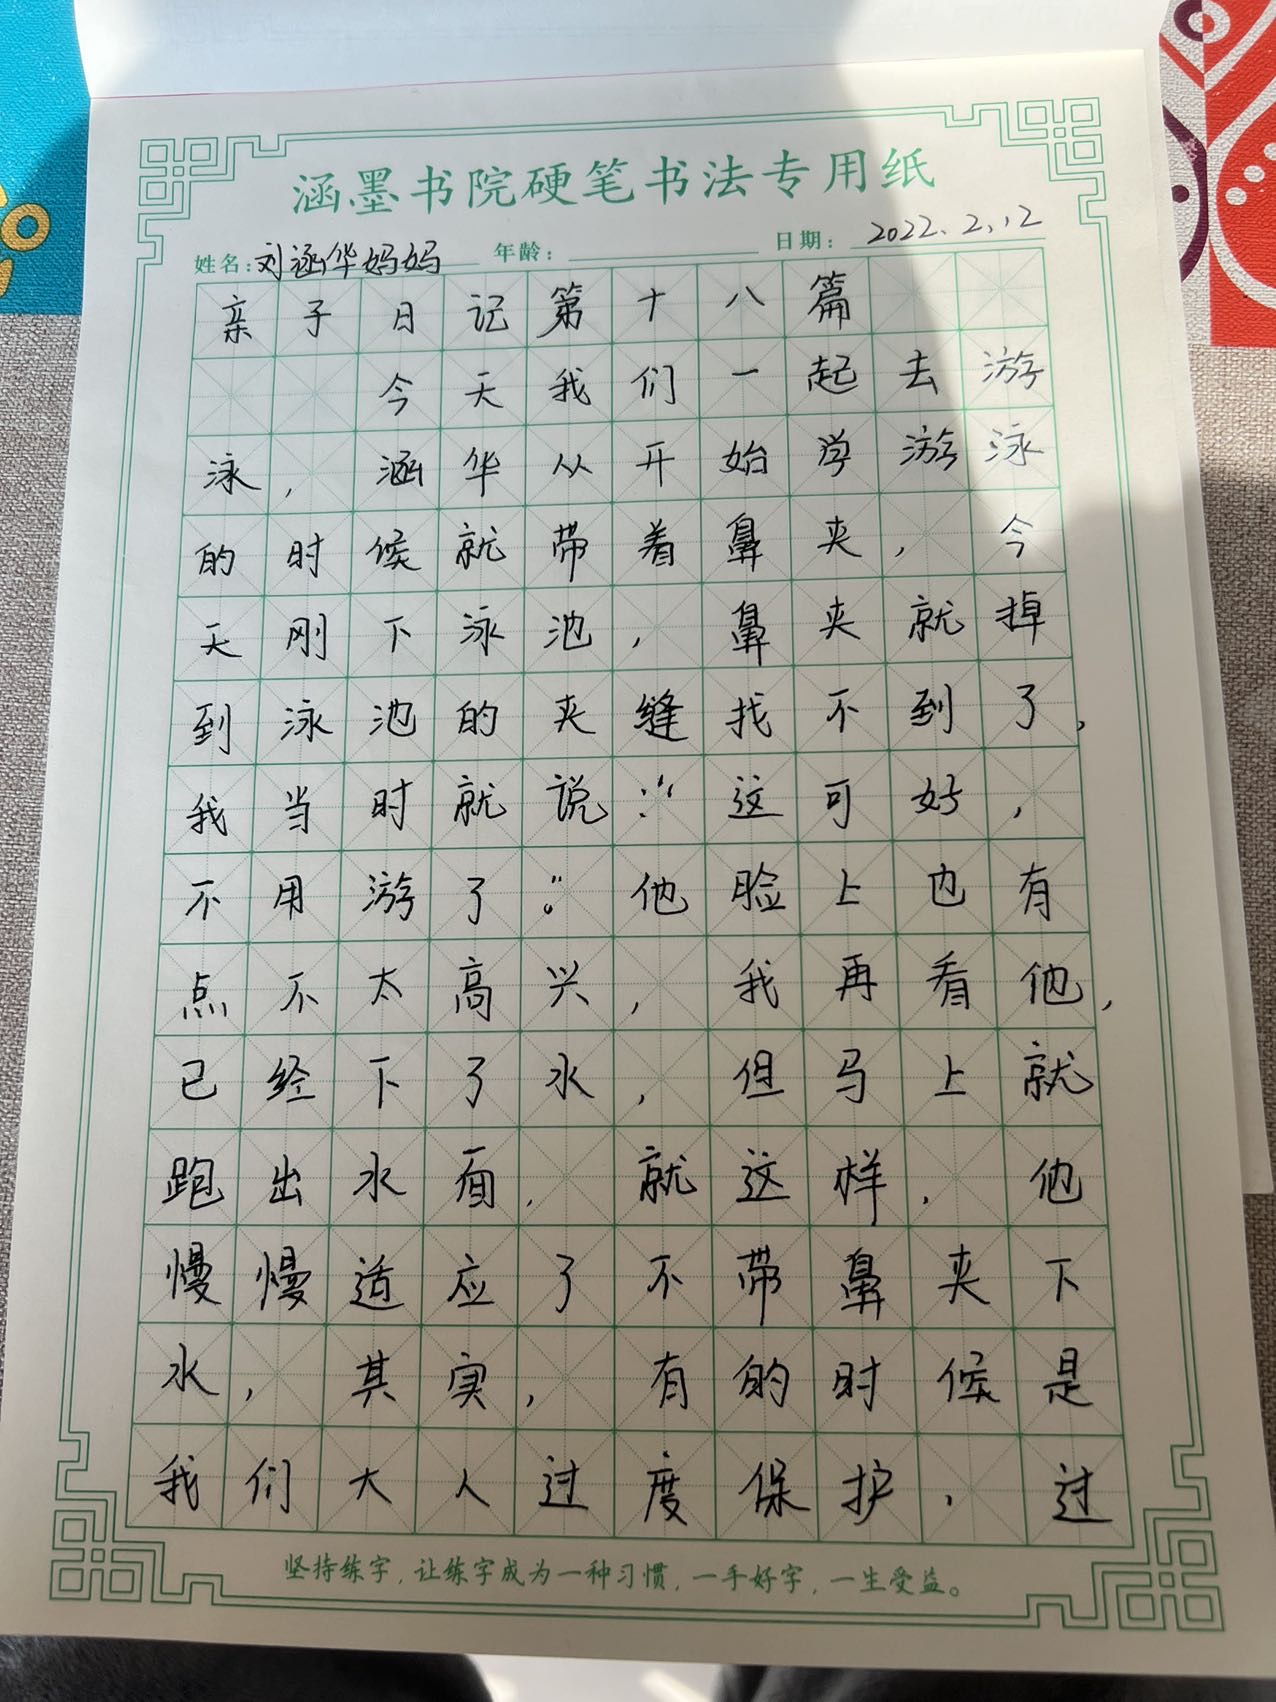 涵墨书院硬笔书法专用纸
姓名:刘涵华妈妈 年龄: 日期: 2022.2.12
亲子日记第十八篇
今天我们一起去游
泳,涵华从开始学游泳
的时候就带着鼻夹,今
天刚下泳池,鼻夹就掉
到泳池的夹缝找不到了,
我当时就说:“这可好,
不用游了。”他脸上也有
点不太高兴,我再看他,
已经下了水,但马上就
跑出水面,就这样,他
慢慢适应了不带鼻夹下
水,其实,有的时候是
我们大人过度保护,过
坚持练字,让练字成为一种习惯,一手好字,一生受益。